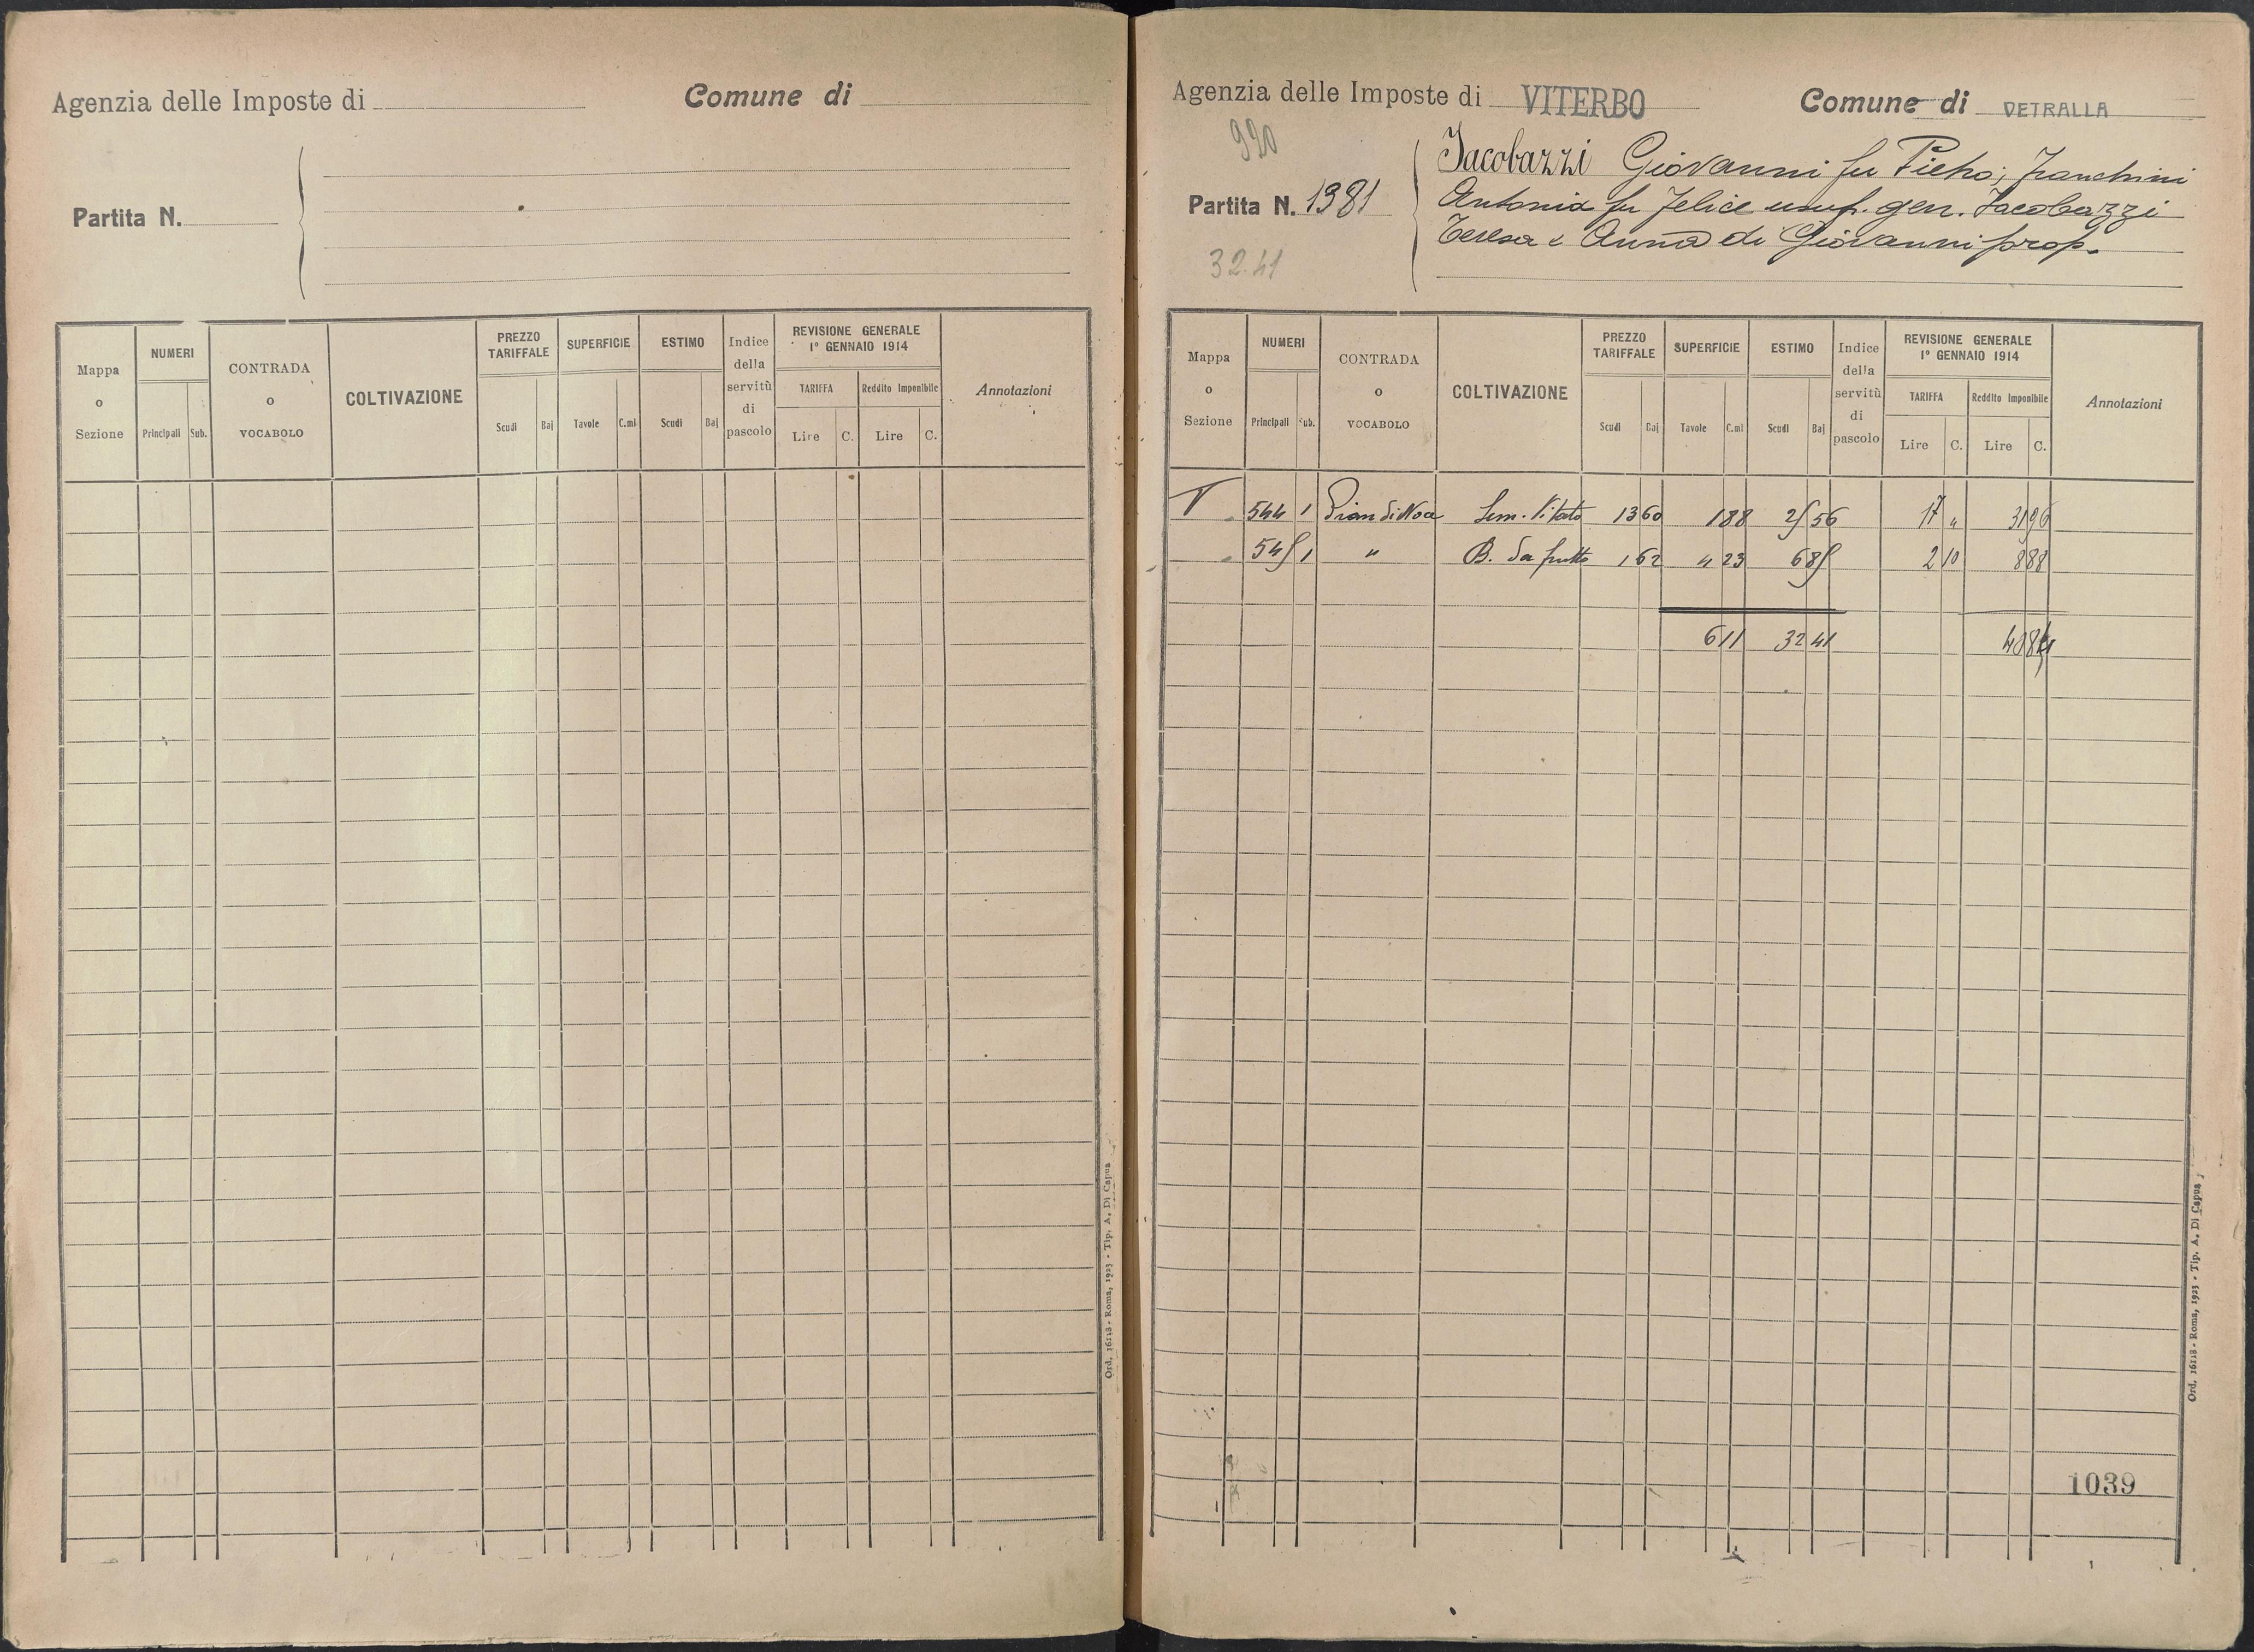 Agenzia delle Imposte di
Comune di
Partita N.
Mappa o Sezione
NUMERI
Principali
Sub.
CONTRADA o VOCABOLO
COLTIVAZIONE
PREZZO TARIFFALE
Scudi
Baj
SUPERFICIE
Tavole
C.mi
ESTIMO
Scudi
Baj
Indice della servitù di pascolo
REVISIONE GENERALE
1° GENNAIO 1914
TARIFFA
Reddito Imponibile
Lire
C.
Lire
C.
Annotazioni
Ord. 16118 - Roma, 1923 - Tip. A. Di Capua
Agenzia delle Imposte di VITERBO
Comune di VETRALLA
920
Partita N. 1381
32.41
Jacobazzi Giovanni fu Pietro; Franchini
Antonia fu Felice usuf. gen. Jacobazzi
Teresa e Anna di Giovanni prop.
Mappa o Sezione
NUMERI
Principali
Sub.
CONTRADA o VOCABOLO
COLTIVAZIONE
PREZZO TARIFFALE
Scudi
Baj
SUPERFICIE
Tavole
C.mi
ESTIMO
Scudi
Baj
Indice della servitù di pascolo
REVISIONE GENERALE
1° GENNAIO 1914
TARIFFA
Reddito Imponibile
Lire
C.
Lire
C.
Annotazioni
544 1 Sem. Vitato 13 60 1 88 25 56 17 " 31 96
545 1 " B. da frutto 1 62 4 23 6 85 2 10 8 88
6 11 32 41 40 84
1039
Ord. 16118 - Roma, 1923 - Tip. A. Di Capua